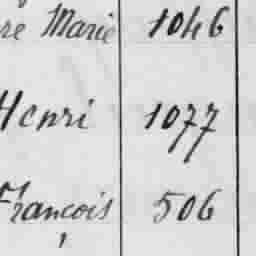 re Marie 1046
Henri 1077
François 506